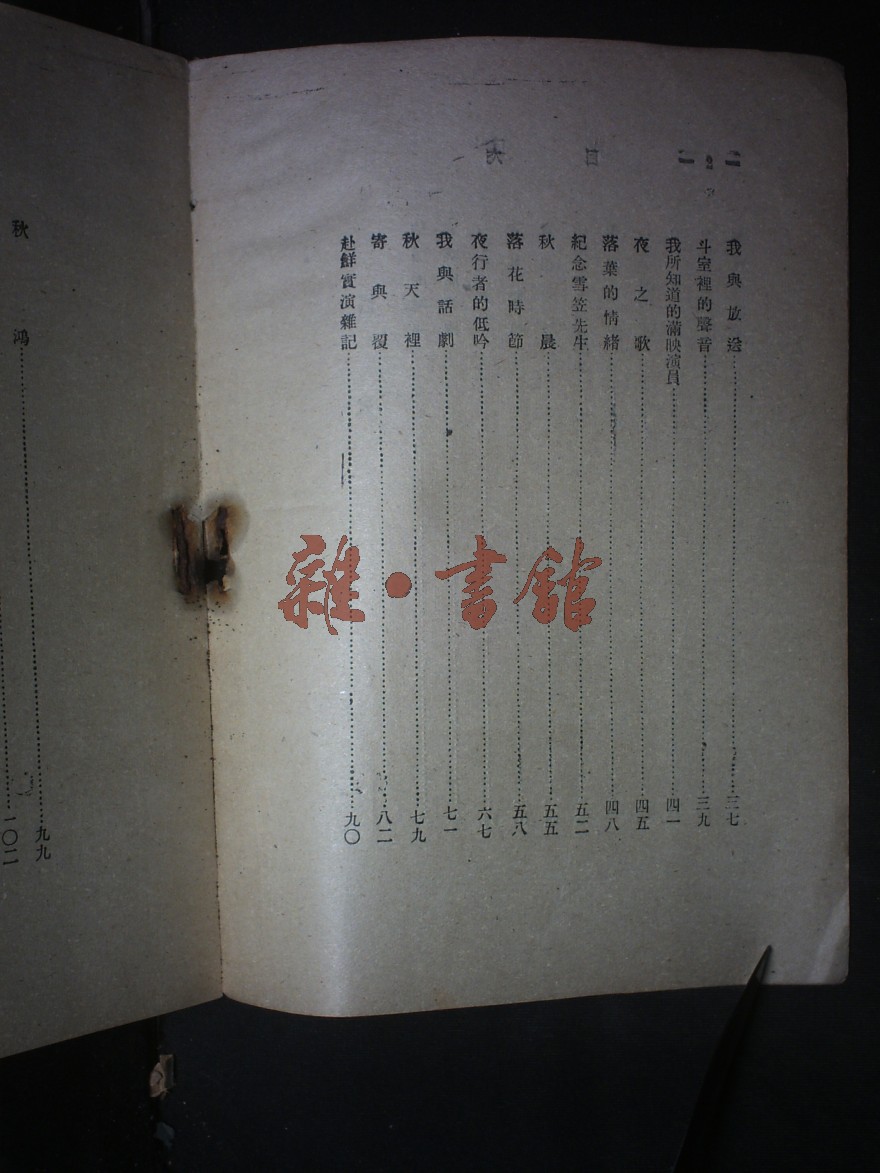 我與放送……三七
斗室裡的聲音……三九
我所知道的滿映演員……四一
夜之歌……四五
落葉的情緒……四八
紀念雪笠先生……五二
秋晨……五五
落花時節……五八
夜行者的低吟……六七
我與話劇……七一
秋天裡……七九
寄與覆……八二
赴鮮實演雜記……九〇
秋鴻……九九
……一〇二
雜·書館